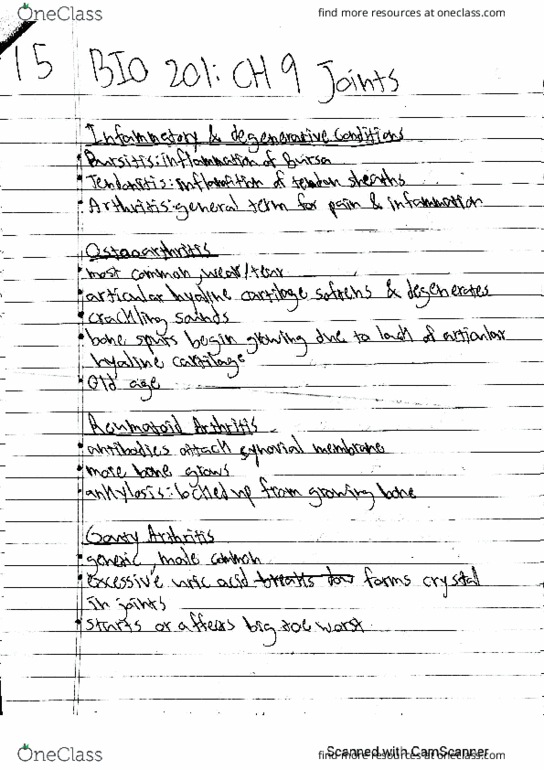 OneClass
find more resources at oneclass.com
15
BIO 201: CH 9 Joints
Inflammetory & degenerative Conditions
• Bursitis: inflammation of Bursa
• Tendonitis: inflamation of tendon sheaths
• Arthritis: general term for pain & inflammation
Osteoarthritis
• most common, wear/tear
• articular hyaline cartilage softens & degenerates
• crackling sounds
• bone spurs begin growing due to lack of articular
hyaline cartilage
• Old age
Reumatoid Arthritis
• antibodies attack synovial membrane
• more bone grows
• ankylosis: locked up from growing bone
Gouty Arthritis
• genetic, male common
• excessive uric acid forms crystal
in joints
• starts or affects big toe worst
Scanned with CamScanner
OneClass
find more resources at oneclass.com